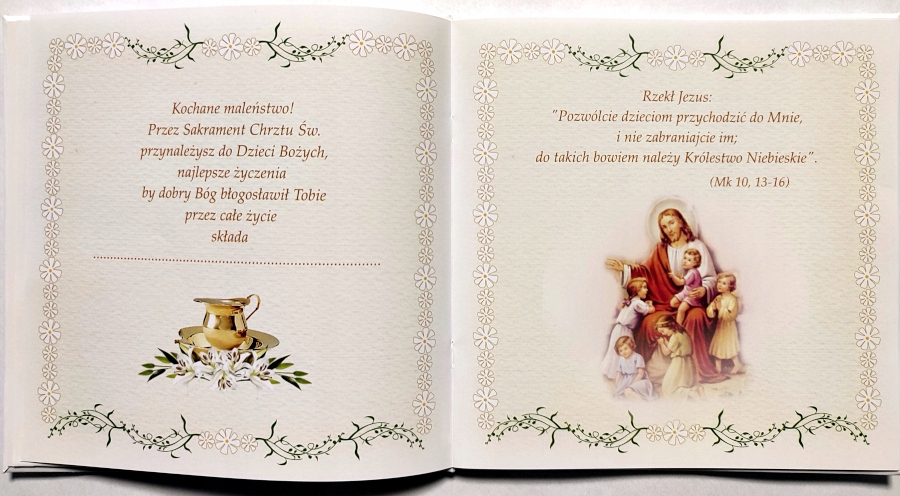 Kochane maleństwo!
Przez Sakrament Chrztu Św.
przynależysz do Dzieci Bożych,
najlepsze życzenia
by dobry Bóg błogosławił Tobie
przez całe życie
składa
Rzekł Jezus:
"Pozwólcie dzieciom przychodzić do Mnie,
i nie zabraniajcie im;
do takich bowiem należy Królestwo Niebieskie".
(Mk 10, 13-16)